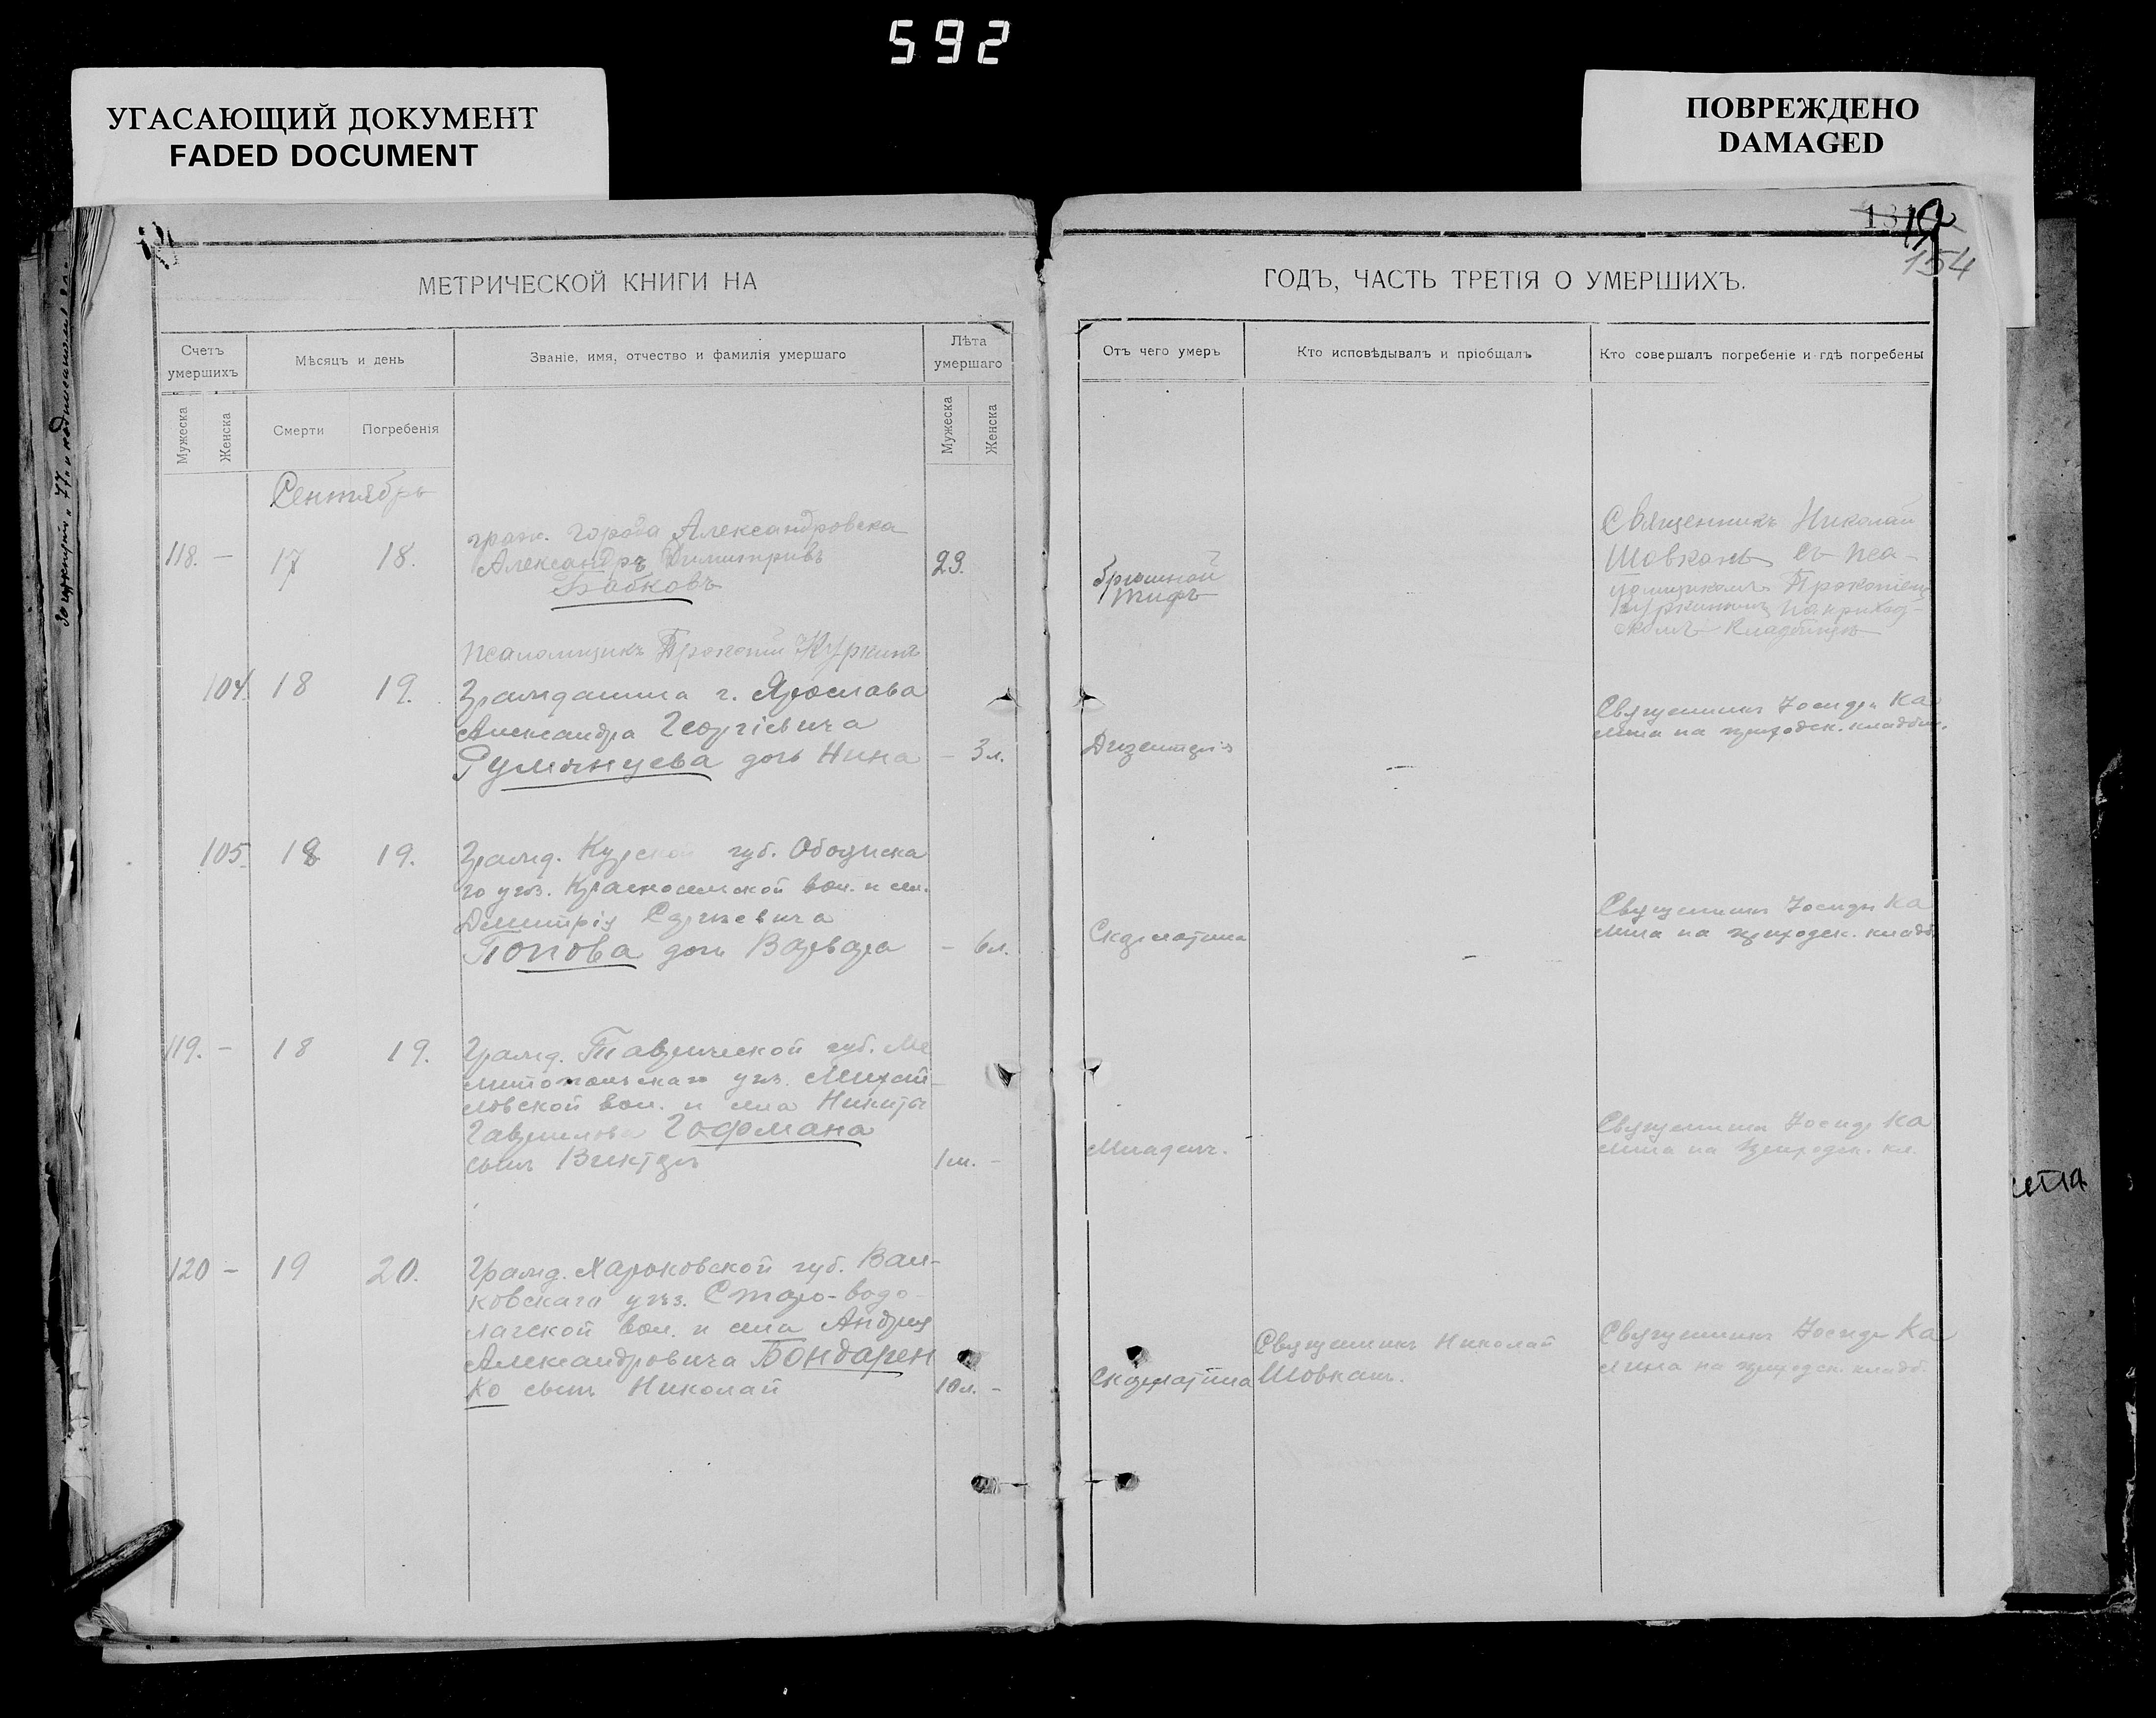 592
УГАСАЮЩИЙ ДОКУМЕНТ
FADED DOCUMENT
ПОВРЕЖДЕНО
DAMAGED
154
МЕТРИЧЕСКОЙ КНИГИ НА
ГОДЪ, ЧАСТЬ ТРЕТІЯ О УМЕРШИХЪ.
Счетъ умершихъ
Мѣсяцъ и день
Званіе, имя, отчество и фамилія умершаго
Лѣта умершаго
Отъ чего умеръ
Кто исповѣдывалъ и пріобщалъ
Кто совершалъ погребеніе и гдѣ погребены
Мужеска
Женска
Смерти
Погребенія
Мужеска
Женска
Сентябрь
118. –
17
18.
граж. города Александровска
Александръ Димитріевъ
Бабковъ
23.
брюшной
тифъ
Священникъ Николай
Шовкань съ пса-
ломщикомъ Прокопіемъ
Куркинымъ на приход-
скомъ кладбищѣ
Псаломщикъ Прокопій Куркинъ
104.
18
19.
Гражданина г. Ярослава
Александра Георгіевича
Румянцева дочь Нина
– 3 л.
Дизентерія
–
Священникъ Іосифъ Ка
лина на приходск. кладбищ.
105.
18
19.
Гражд. Курской губ. Обоянска
го уѣз. Красно
вол. и села
Димитрія Сергѣевича
Попова дочь Варвара
– 6 л.
Скарлатина
–
Священникъ Іосифъ Ка
лина на приходск. кладб.
119. –
18
19.
Гражд. Таврической губ. Ме
литопольскаго уѣз. Михай-
ловской вол. и села Никиты
Гаврилова Гофмана
сынъ Викторъ
1 м. –
Младенч.
Священникъ Іосифъ Ка
лина на приходск. кл.
120 –
19
20.
Гражд. Харьковской губ. Вал-
ковскаго уѣз. Старо-водо-
лагской вол. и села Андрея
Александровича Бондарен
ко сынъ Николай
10 л. –
Скарлатина
Священникъ Николай
Шовкань.
Священникъ Іосифъ Ка
лина на приходск. кладб.